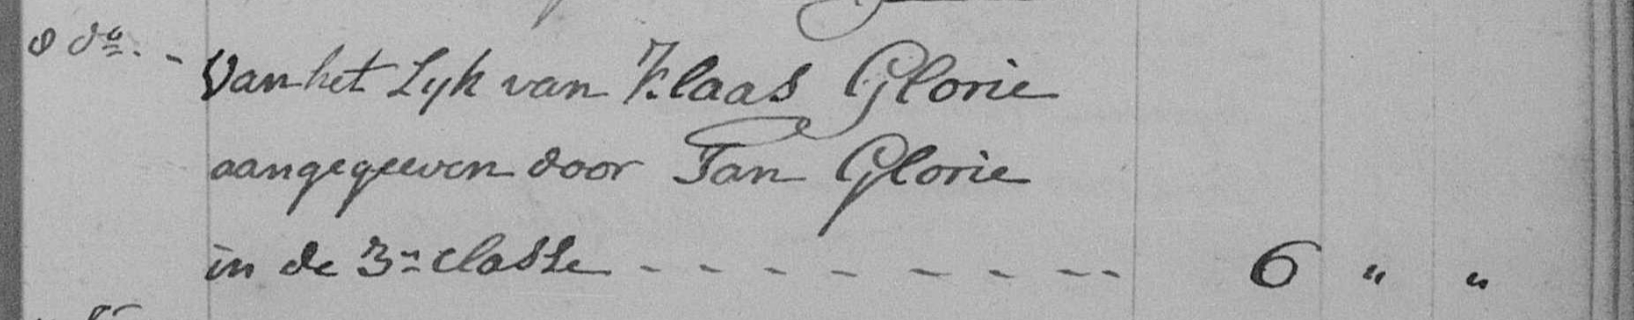 8 do. - Van het Lyk van Klaas Glorie
aangegeeven door Jan Glorie
in de 3n classe - - - - - - - - - 6 " "